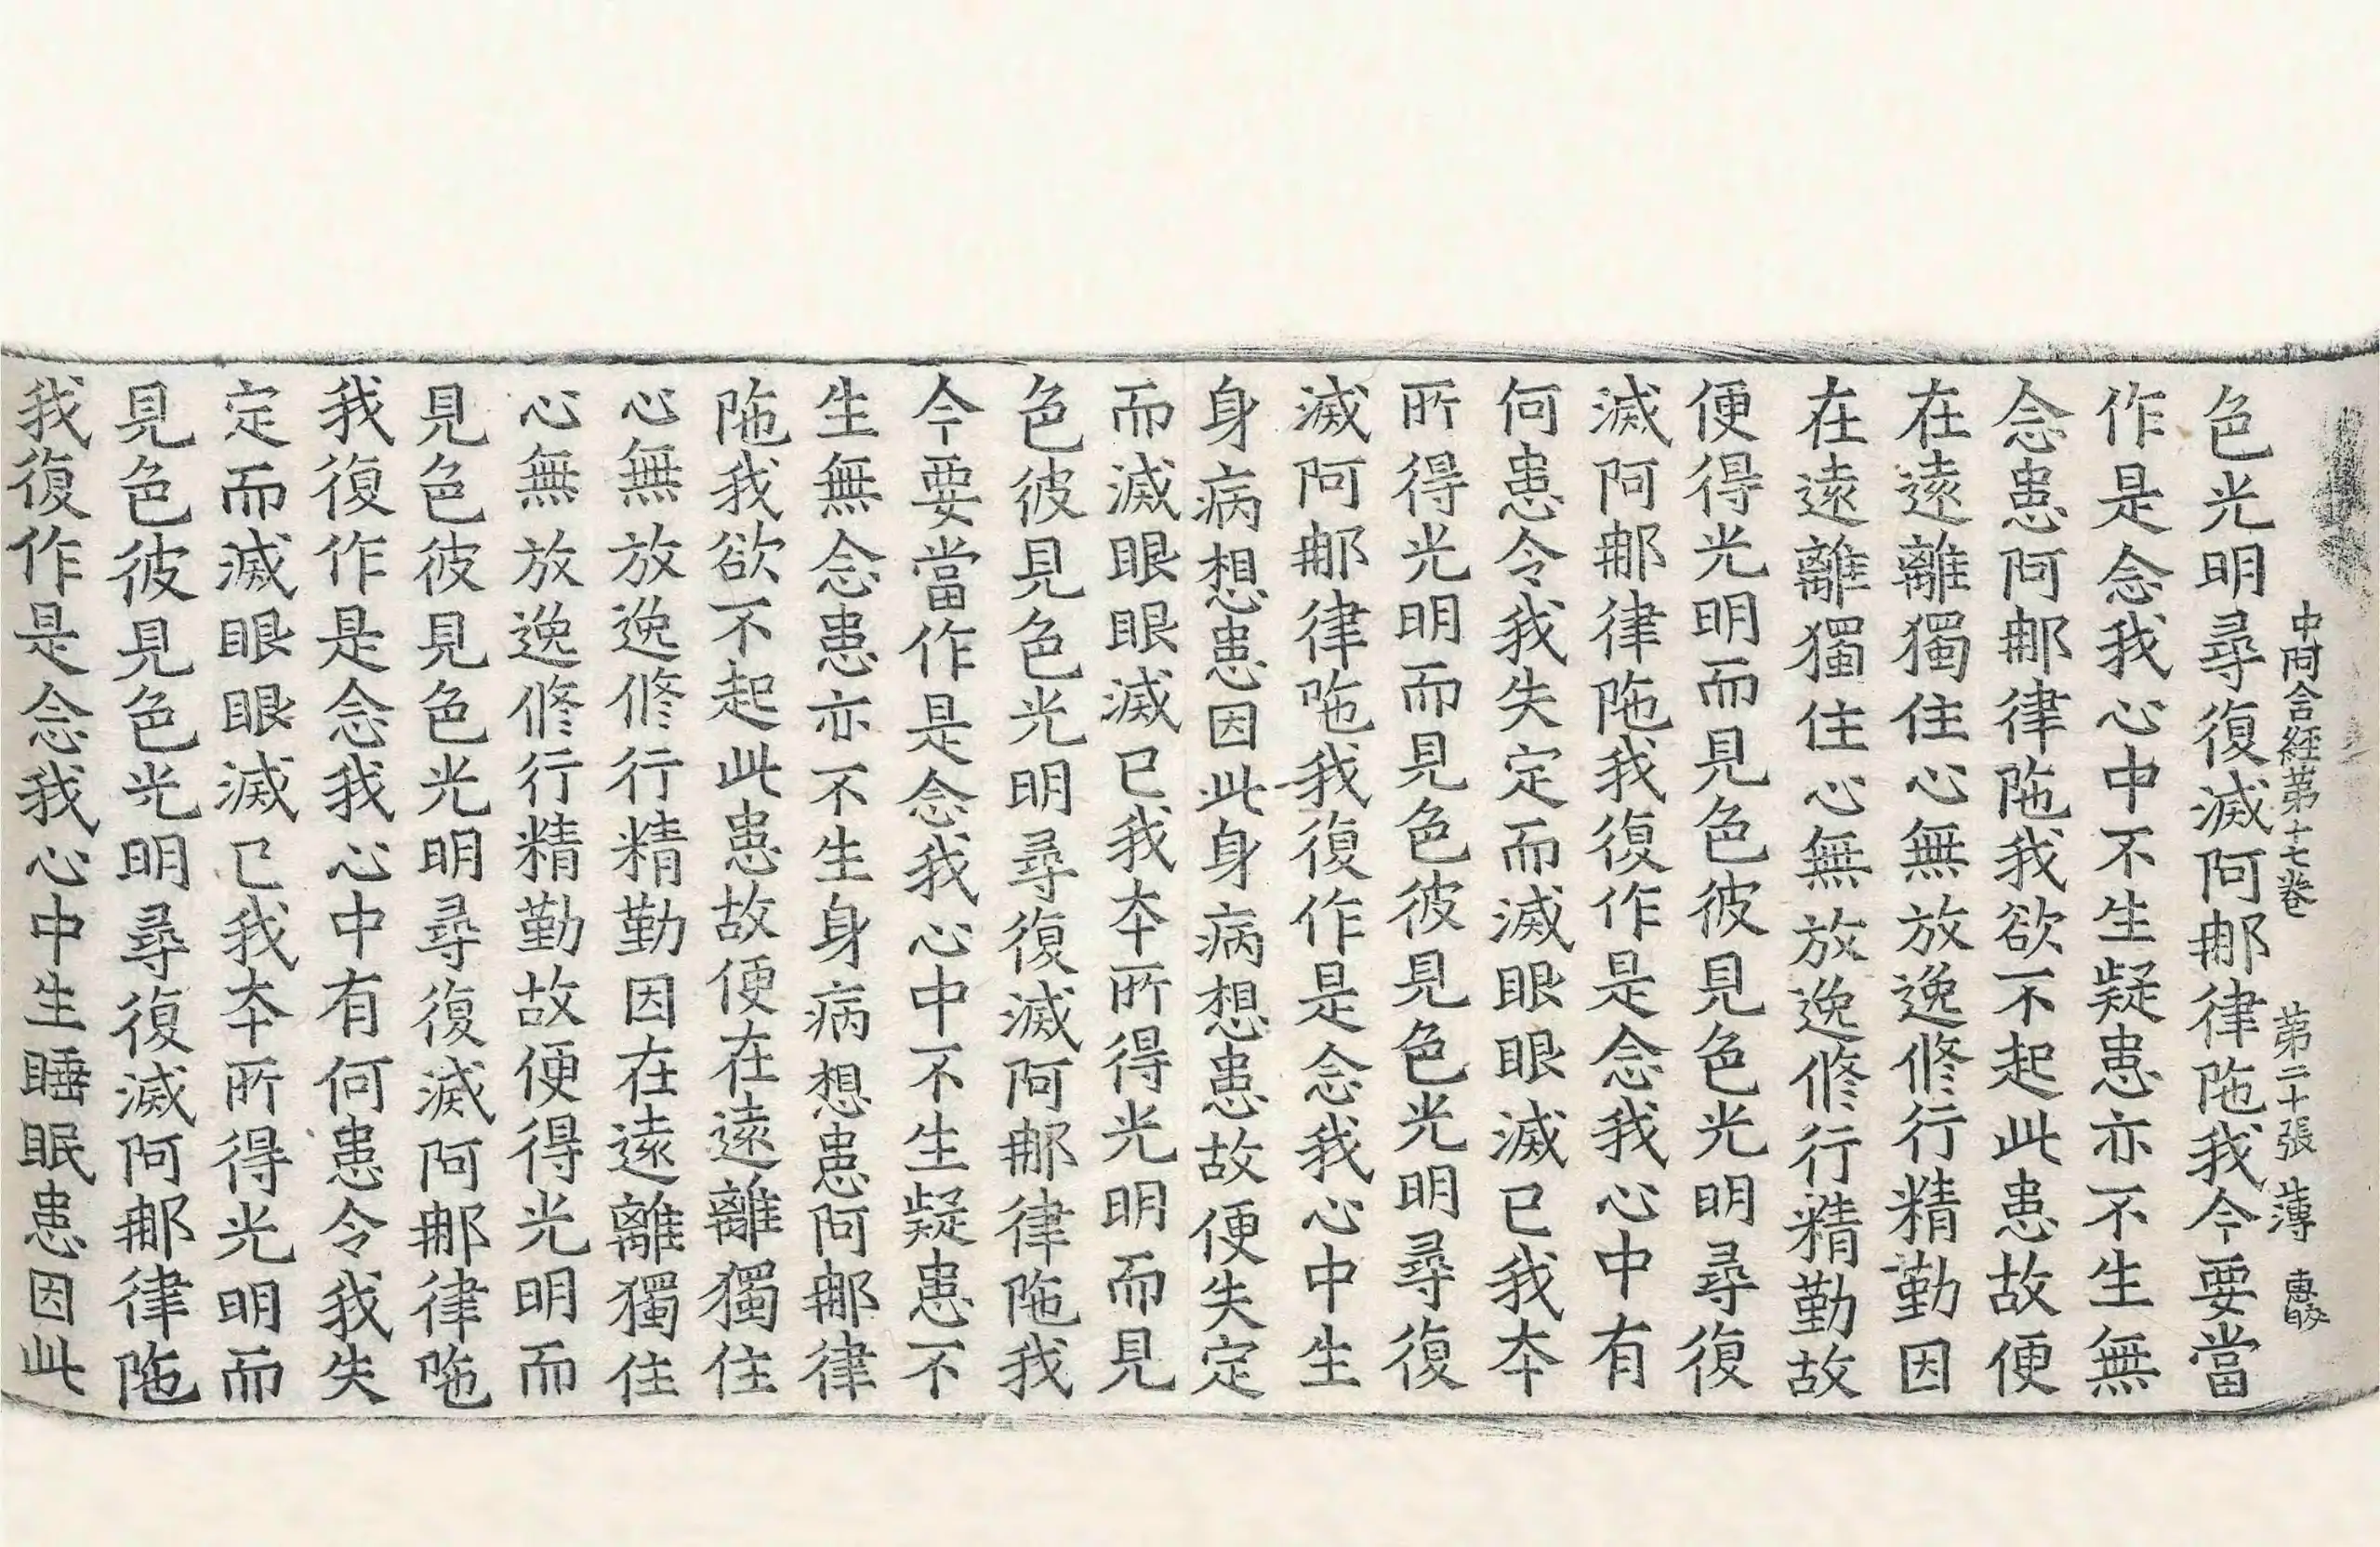 中阿含経第十七卷 第二十張 薄
色光明尋復滅阿𨚗律陁我今要當
作是念我心中不生疑患亦不生無
念患阿𨚗律陁我欲不起此患故便
在遠離獨住心無放逸修行精勤因
在遠離獨住心無放逸修行精勤故
便得光明而見色彼見色光明尋復
滅阿𨚗律陁我復作是念我心中有
何患令我失定而滅眼眼滅已我本
所得光明而見色彼見色光明尋復
滅阿𨚗律陁我復作是念我心中生
身病想患因此身病想患故便失定
而滅眼眼滅已我本所得光明而見
色彼見色光明尋復滅阿𨚗律陁我
今要當作是念我心中不生疑患不
生無念患亦不生身病想患阿𨚗律
陁我欲不起此患故便在遠離獨住
心無放逸修行精勤因在遠離獨住
心無放逸修行精勤故便得光明而
見色彼見色光明尋復滅阿𨚗律陁
我復作是念我心中有何患令我失
定而滅眼眼滅已我本所得光明而
見色彼見色光明尋復滅阿𨚗律陁
我復作是念我心中生睡眠患因此